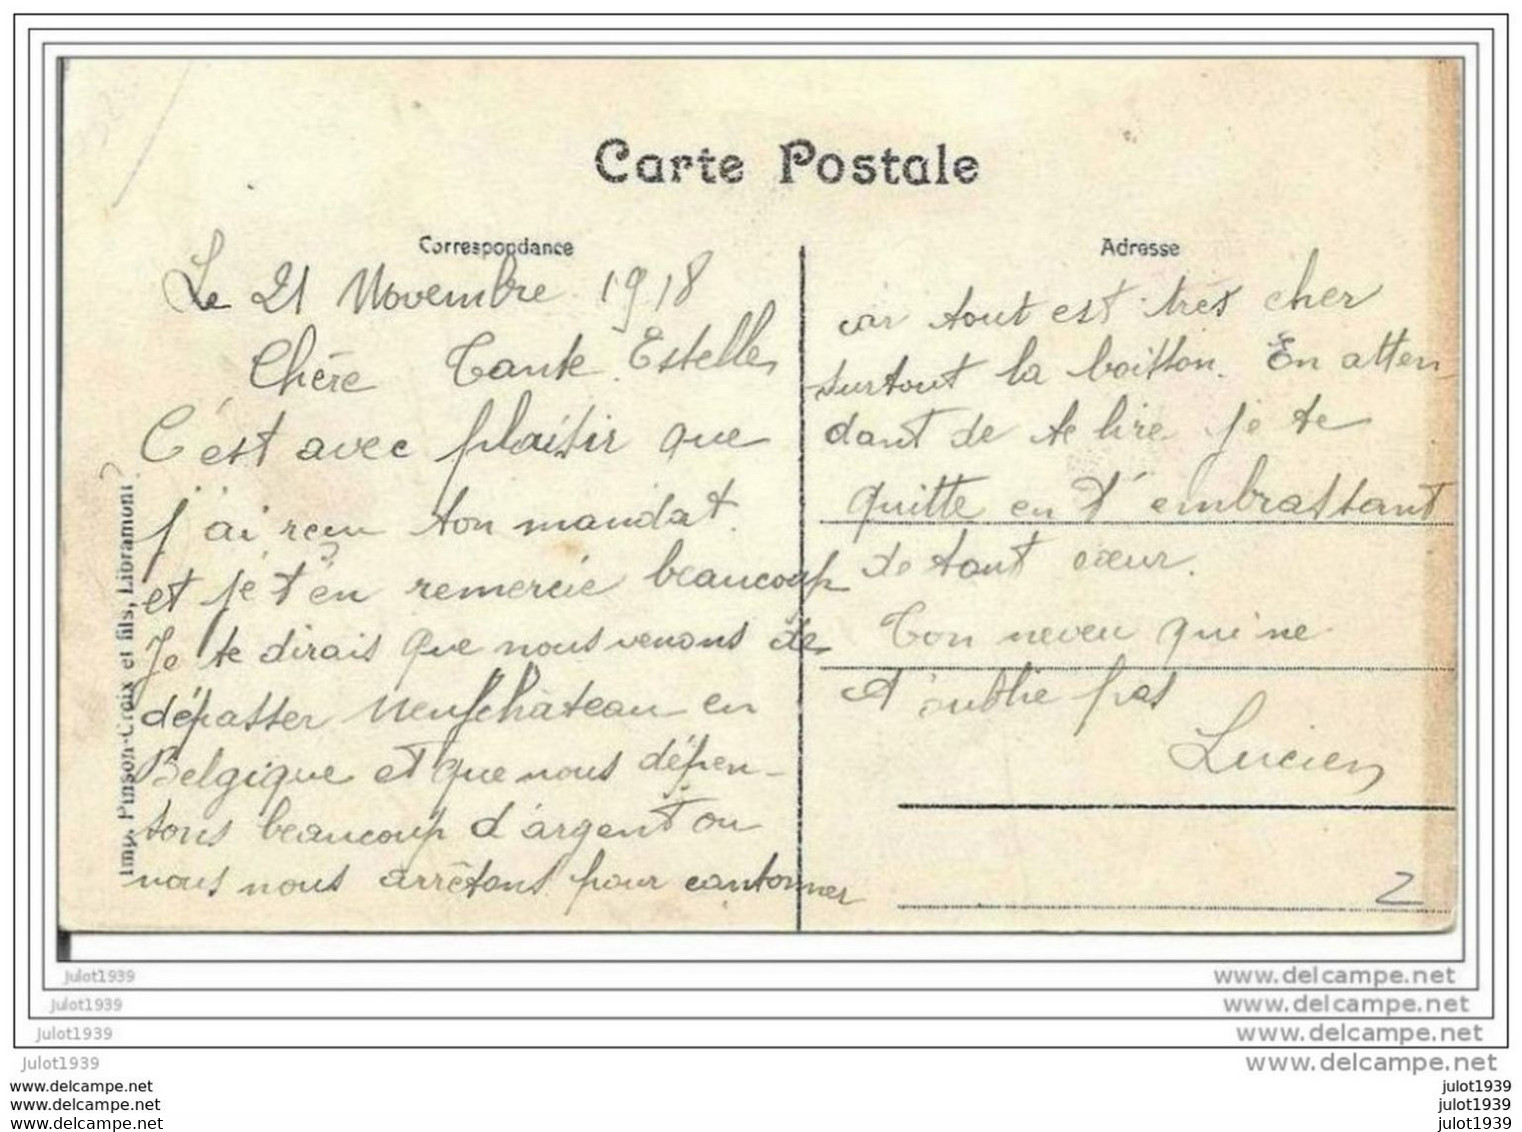 Carte Postale
Correspondance
Le 21 Novembre 1918
Chère Tante Estelle
C'est avec plaisir que
j'ai reçu ton mandat.
et je t'en remercie beaucoup
Je te dirais que nous venons de
dépasser Neufchateau en
Belgique et que nous dépen-
sons beaucoup d'argent ou
nous nous arrêtons pour cantonner
Adresse
car tout est très cher
surtout la boisson. En atten-
dant de te lire je te
quitte en t'embrassant
de tout cœur.
Ton neveu qui ne
t'oublie pas
Lucien
2
Imp. Pinson-Croix et fils, Libramont
julot1939
www.delcampe.net
julot1939
www.delcampe.net
julot1939
www.delcampe.net
julot1939
www.delcampe.net
www.delcampe.net
julot1939
www.delcampe.net
julot1939
www.delcampe.net
julot1939